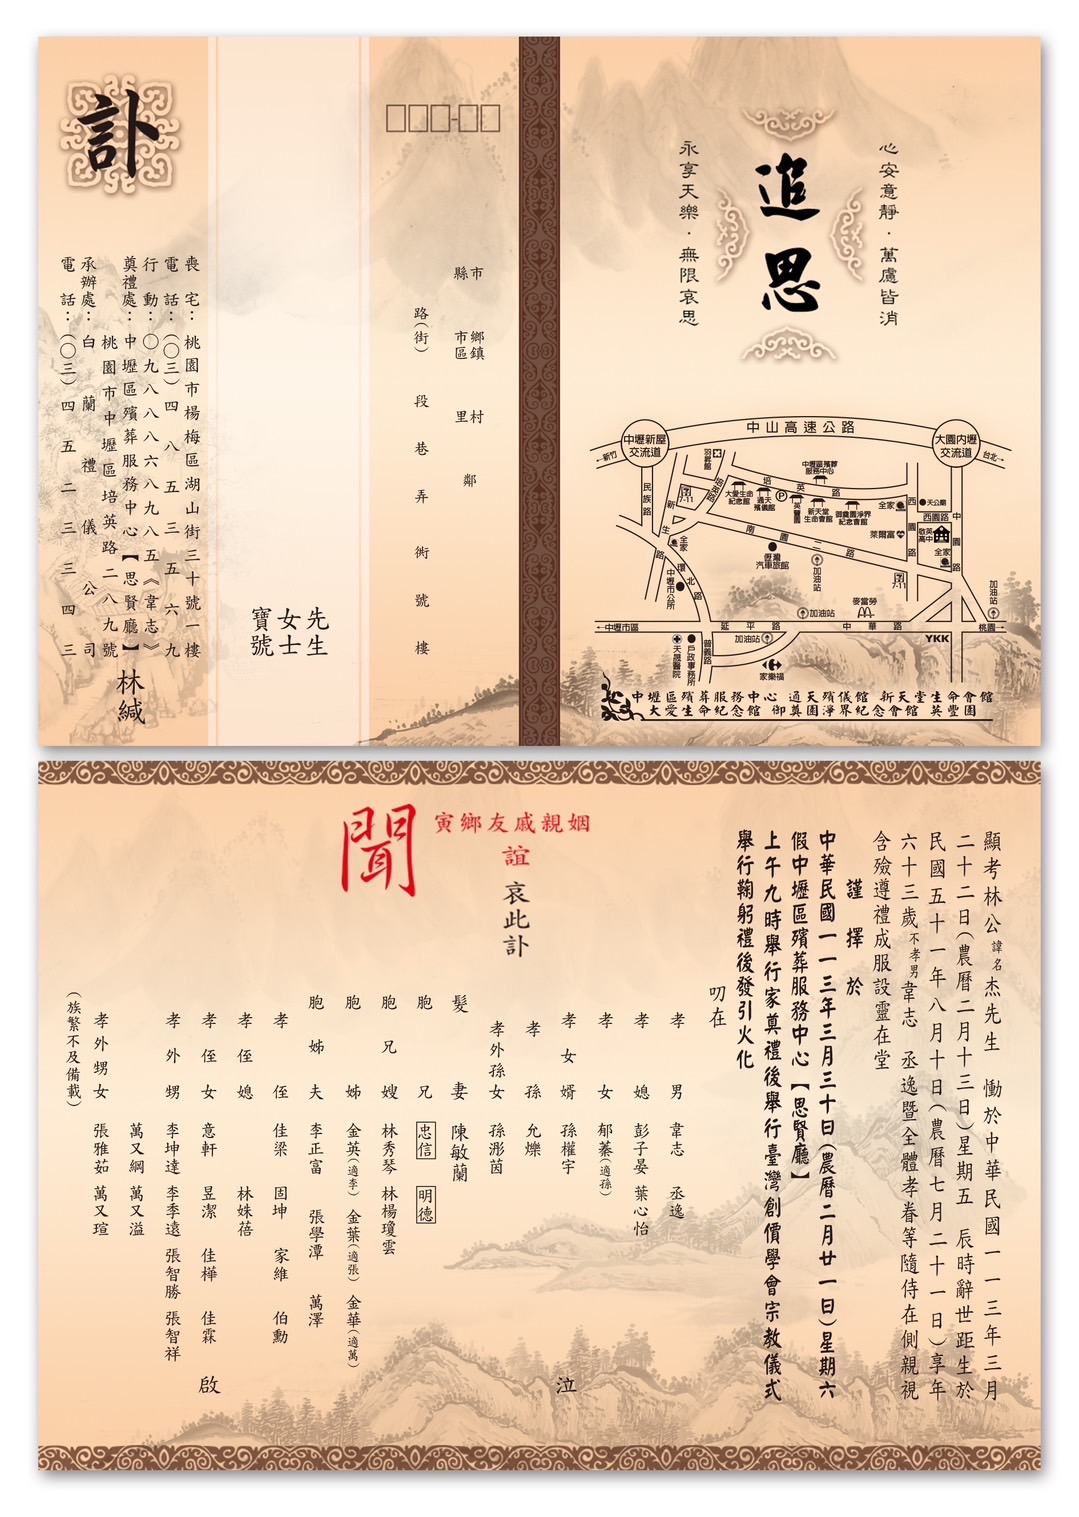 心安意靜．萬慮皆消
追思
永享天樂．無限哀思
中山高速公路
中壢新屋
交流道
大園内壢
交流道
←新竹
台北→
羽昇館
民族路
7-11
新生路
培英路
培英路
大愛生命
紀念館
通天
殯儀館
P
英豐園
中壢區殯葬
服務中心
新天堂
生命會館
御奠園淨界
紀念會館
全家
天公廟
西園路
西園路
中園路
萊爾富
敬英高中
全家
南園二路
壢灣
汽車旅館
加油站
7-11
全家
環北路
中壢市公所
加油站
麥當勞
加油站
←中壢市區
延平路
中華路
桃園→
天晟醫院
戶政事務所
普義路
加油站
家樂福
YKK
中壢區殯葬服務中心 通天殯儀館 新天堂生命會館
大愛生命紀念館 御奠園淨界紀念會館 英豐園
□□□-□□
縣市
市區 鄉鎮
里村
鄰
路(街) 段 巷 弄 衖 號 樓
先生
女士
寶號
訃
喪宅：桃園市楊梅區湖山街三十號一樓
電話：(○三)四八五三五六九
行動：○九八八八六八九八五《韋志》
奠禮處：中壢區殯葬服務中心【思賢廳】
桃園市中壢區培英路二八九號
承辦處：白蘭禮儀公司
電話：(○三)四五二三三四三
林緘
顯考林公諱名杰先生 慟於中華民國一一三年三月
二十二日(農曆二月十三日)星期五 辰時辭世距生於
民國五十一年八月十日(農曆七月二十一日)享年
六十三歲不孝男韋志 丞逸暨全體孝眷等隨侍在側親視
含殮遵禮成服設靈在堂
謹擇於
中華民國一一三年三月三十日(農曆二月廿一日)星期六
假中壢區殯葬服務中心【思賢廳】
上午九時舉行家奠禮後舉行臺灣創價學會宗教儀式
舉行鞠躬禮後發引火化
叨在
寅鄉友戚親姻
誼
哀此訃
聞
孝男 韋志 丞逸
孝媳 彭子晏 葉心怡
孝女 郁蓁(適孫)
孝女婿 孫權宇
孝孫 允爍
孝外孫女 孫浵茵
髮妻 陳敏蘭
胞兄 忠信 明德
胞兄嫂 林秀琴 林楊瓊雲
胞姊 金英(適李) 金葉(適張) 金華(適萬)
胞姊夫 李正富 張學潭 萬澤
孝侄 佳梁 固坤 家維 伯勳
孝侄媳 林姝蓓
孝侄女 意軒 昱潔 佳樺 佳霖
孝外甥 李坤達 李季遠 張智勝 張智祥
萬又綱 萬又溢
孝外甥女 張雅茹 萬又瑄
(族繁不及備載)
泣
啟